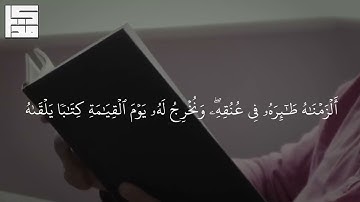 أَلْزَمْنَـٰهُ طَـٰٓئِرَهُۥ فِى عُنُقِهِۦ ۖ وَنُخْرِجُ لَهُۥ يَوْمَ ٱلْقِيَـٰمَةِ كِتَـٰبًا يَلْقَىٰهُ